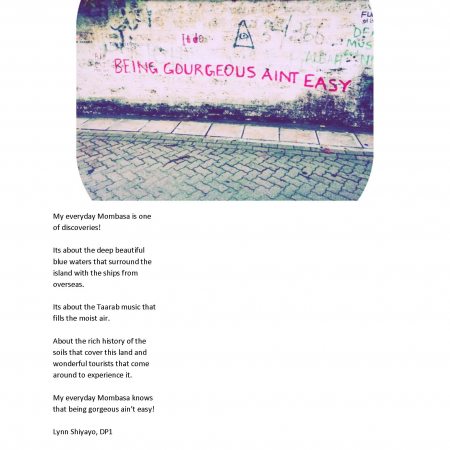 BEING GOURGEOUS AINT EASY
My everyday Mombasa is one
of discoveries!
Its about the deep beautiful
blue waters that surround the
island with the ships from
overseas.
Its about the Taarab music that
fills the moist air.
About the rich history of the
soils that cover this land and
wonderful tourists that come
around to experience it.
My everyday Mombasa knows
that being gorgeous ain't easy!
Lynn Shiyayo, DP1